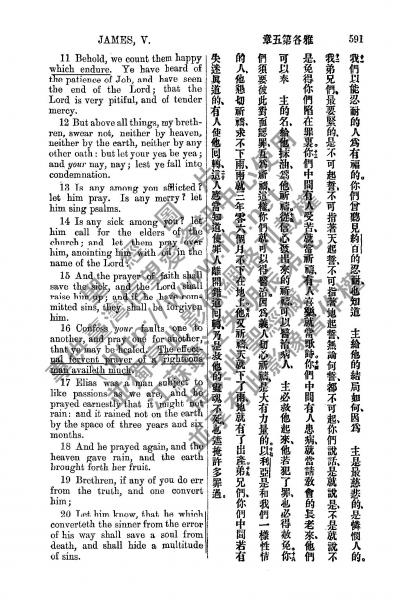 JAMES, V.
雅各第五章
591
11 Behold, we count them happy
which endure. Ye have heard of
the patience of Job, and have seen
the end of the Lord; that the
Lord is very pitiful, and of tender
mercy.
12 But above all things, my breth-
ren, swear not, neither by heaven,
neither by the earth, neither by any
other oath: but let your yea be yea;
and your nay, nay; lest ye fall into
condemnation.
13 Is any among you afflicted?
let him pray. Is any merry? let
him sing psalms.
14 Is any sick among you? let
him call for the elders of the
church; and let them pray over
him, anointing him with oil in the
name of the Lord:
15 And the prayer of faith shall
save the sick, and the Lord shall
raise him up; and if he have com-
mitted sins, they shall be forgiven
him.
16 Confess your faults one to
another, and pray one for another,
that ye may be healed. The effect-
ual fervent prayer of a righteous
man availeth much.
17 Elias was a man subject to
like passions as we are, and he
prayed earnestly that it might not
rain: and it rained not on the earth
by the space of three years and six
months.
18 And he prayed again, and the
heaven gave rain, and the earth
brought forth her fruit.
19 Brethren, if any of you do err
from the truth, and one convert
him;
20 Let him know, that he which
converteth the sinner from the error
of his way shall save a soul from
death, and shall hide a multitude
of sins.
我們以能忍耐的人爲有福的、你們曾聽見約百的忍耐、也知道 主給他的結局如何、因爲 主是眞慈悲的、是憐憫人的。
我弟兄們、最要緊的是不可起誓、不可指著天起誓、不可指著地起誓、無論何誓都不可起、你們說話、是就說是、不是就說不是、
免得你們陷在罪裏。你們中間有人受苦、就當祈禱、有人喜樂、就當歌詩。你們中間有人患病、就當請教會的長老來、他們
可以奉 主的名、給他抹油、爲他祈禱。從信心發出來的祈禱、可以醫治病人、 主必救他起來、他若犯了罪、也必得赦免。你
們須要彼此對面認罪、互爲祈禱、這樣、你們就可以得醫治、因爲義人切心祈禱、是大有力量的。以利亞是和我們一樣性情
的人、他懇切祈求不下雨、雨就三年零六個月不下在地上。他又祈禱、天就下了雨、地就有了出產。弟兄們、你們中間若有
失迷眞道的、有人使他回轉、這人應當知道、使罪人離開錯道回轉、乃是救他的靈魂不死、也遮掩許多罪過。